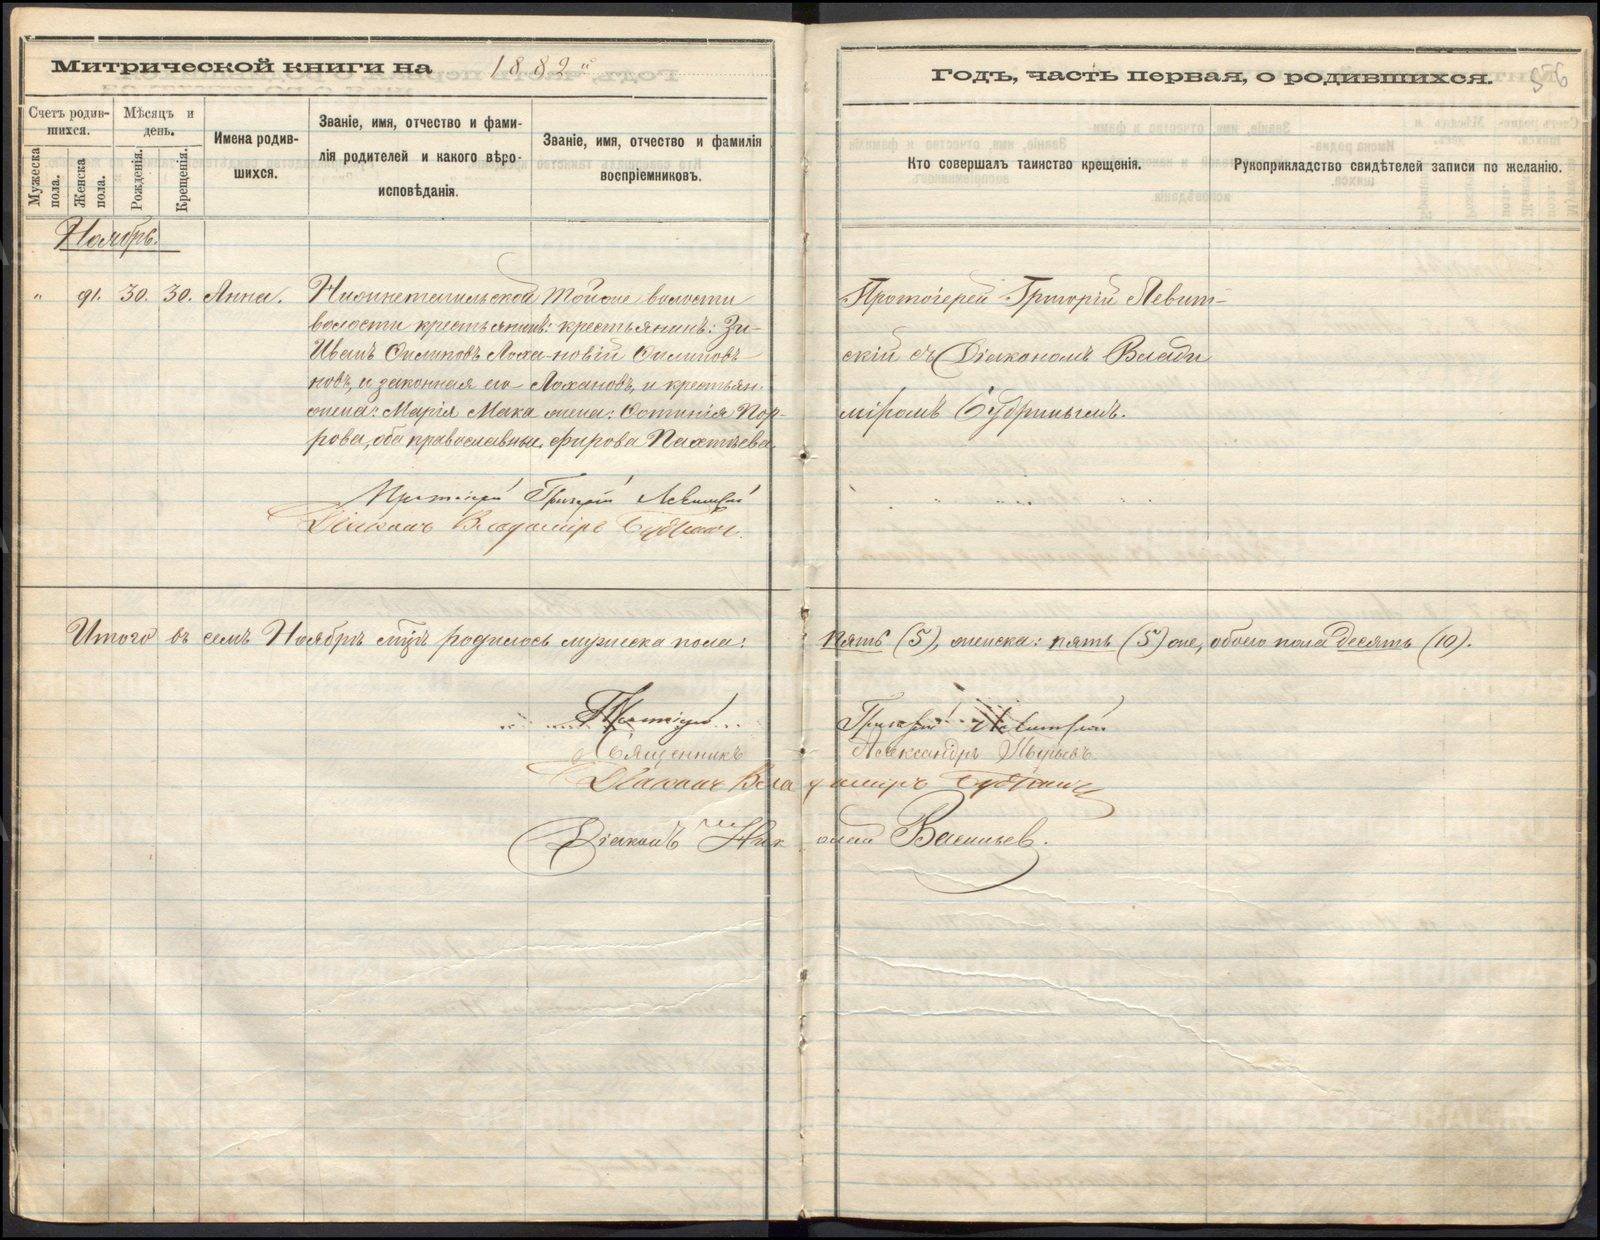 Митрической книги на 1882й
Годъ, часть первая, о родившихся.
356
Счетъ родив-
шихся.
Мужеска пола.
Женска пола.
Мѣсяцъ и день.
Рожденія.
Крещенія.
Имена родив-
шихся.
Званіе, имя, отчество и фами-
лія родителей и какого вѣро-
исповѣданія.
Званіе, имя, отчество и фамилія
воспріемниковъ.
Кто совершалъ таинство крещенія.
Рукоприкладство свидѣтелей записи по желанію.
Ноябрь.
" 91. 30. 30. Анна.
Нижнетагильской
волости крестьянинъ:
Иванъ Филиповъ Лоха-
новъ, и законная его
жена: Марія Мака
рова, оба православные.
Тойже волости
крестьянинъ: Зи-
новій Филиповъ
Лохановъ, и крестьян.
жена: Фотинія Пор-
фирова Пахтѣева.
Протоіерей Григорій Левит-
скій съ Діакономъ Влади
міромъ Будринымъ.
Протоіерей Григорій Левитскій
Діаконъ Владиміръ Будринъ.
Итого въ семъ Ноябрѣ мцѣ родилось мужеска пола: пять (5), женска: пять (5) же, обоего пола десять (10).
Протоіерей Григорій Левитскій
Священникъ Александръ
Діаконъ Владиміръ Будринъ
Діаконъ Николай Васильев.
METRIKI.GASO-URAL.RU